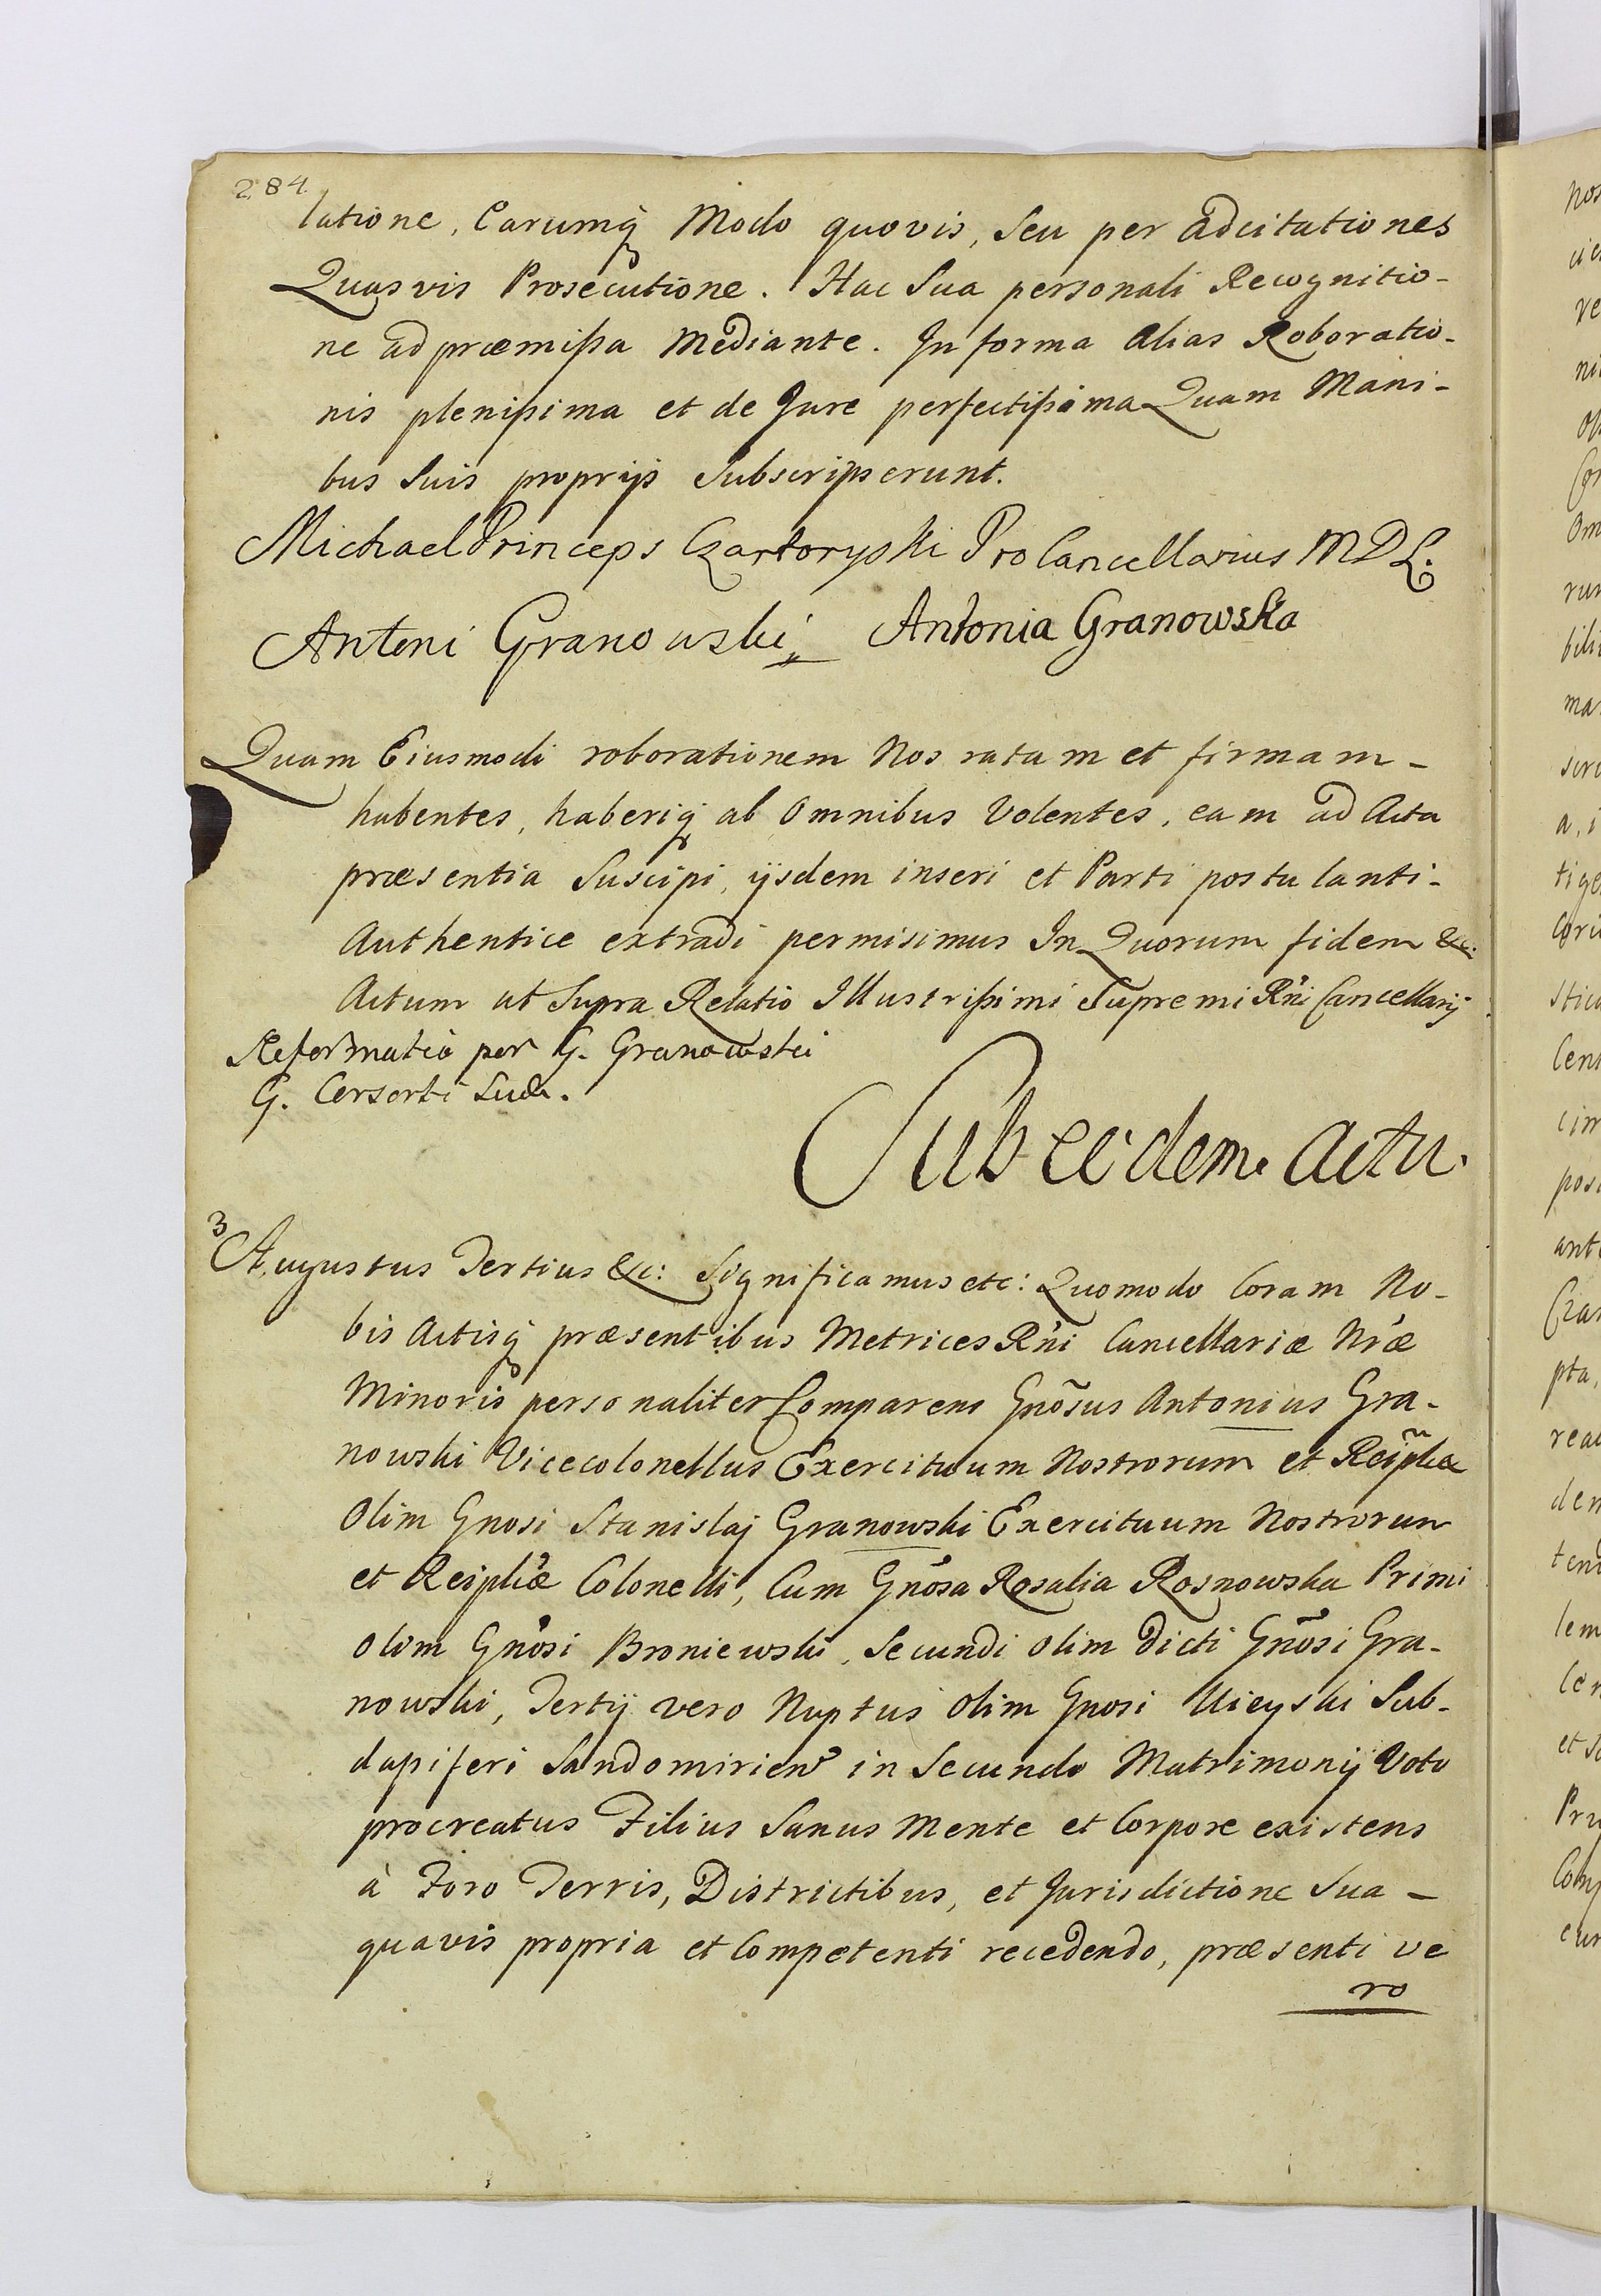 284.
latione, Earumq́ Modo quovis, seu per adcitationes
Quasvis Prosecutione. Hac Sua personali Recognitio-
ne ad præmißa Mediante. In forma alias Roboratio-
nis plenißima et de Jure perfectißima Quam Mani-
bus Suis proprijs Subscripserunt.
Michael Princeps Czartoryski ProCancellarius MDL.
Antoni Granowski Antonia Granowska
Quam Eiusmodi roborationem Nos ratam et firmam -
habentes, haberiq́ ab Omnibus Volentes, eam ad Acta
præsentia Suscipi, ijsdem inseri et Parti postulanti -
Authentice extradi permisimus In Quorum fidem &c.
Actum ut Supra Relatio Illustrißimi Supremi Rñi Cancellarij
Reformatio per G. Granowski
G. Consorti Suæ.
Sub eodem Actu.
3 Augustus Tertius &c: Significamus etc: Quomodo Coram No-
bis Actisq́ præsentibus Metrices Rñi Cancellariæ Nræ
Minoris personaliter Comparens Gnõsus Antonius Gra-
nowski Vicecolonellus Exercituum Nostrorum et Reiplcæ
Olim Gnosi Stanislaj Granowski Exercituum Nostrorum
et Reiplcæ Colonelli, Cum Gnõsa Rosalia Rosnowska Primi
olim Gnõsi Broniewski, Secundi olim dicti Gnõsi Gra-
nowski, Tertij vero Nuptus olim Gnosi Uieyski Sub-
dapiferi Sandomirien in Secundo Matrimonij Voto
procreatus Filius Sanus Mente et Corpore existens
à Foro Terris, Districtibus, et Jurisdictione Sua -
quavis propria et Competenti recedendo, præsenti ve
ro